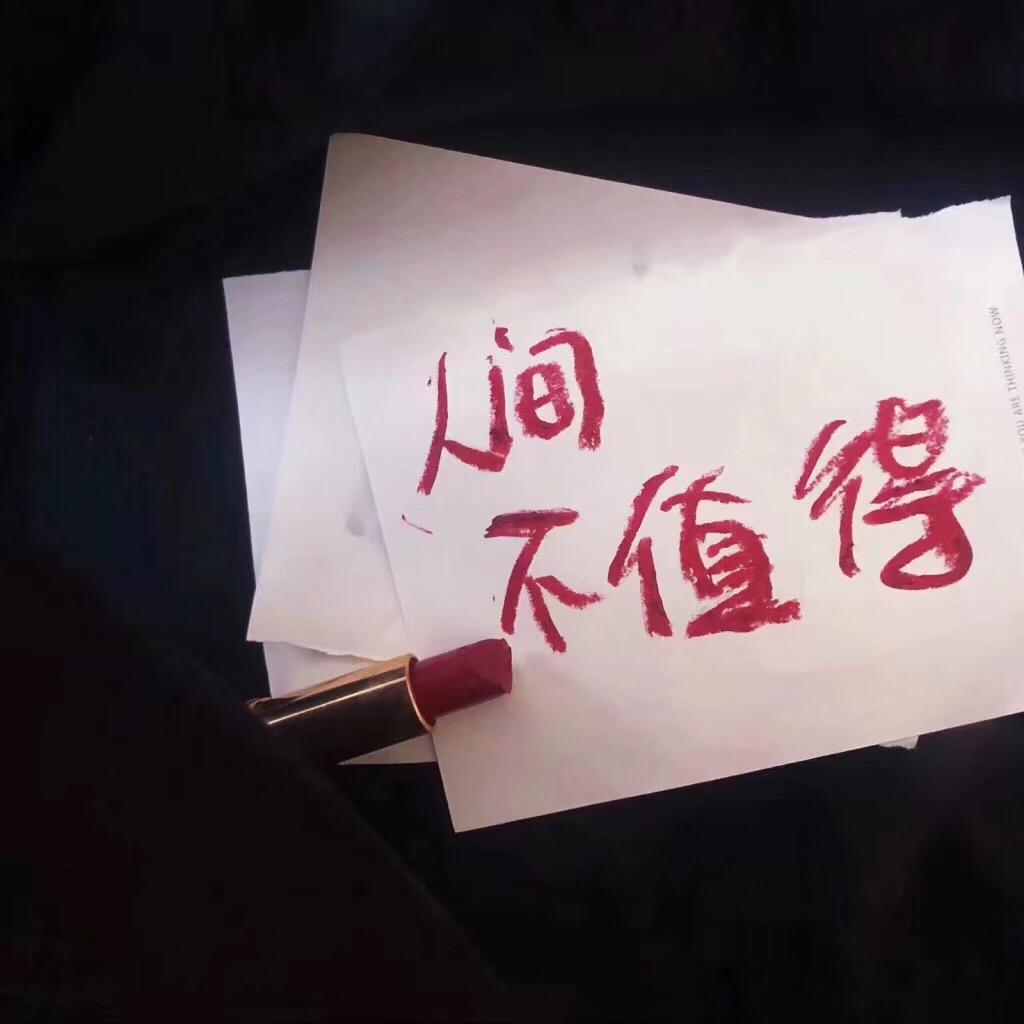 人间
不值得
YOU ARE THINKING NOW